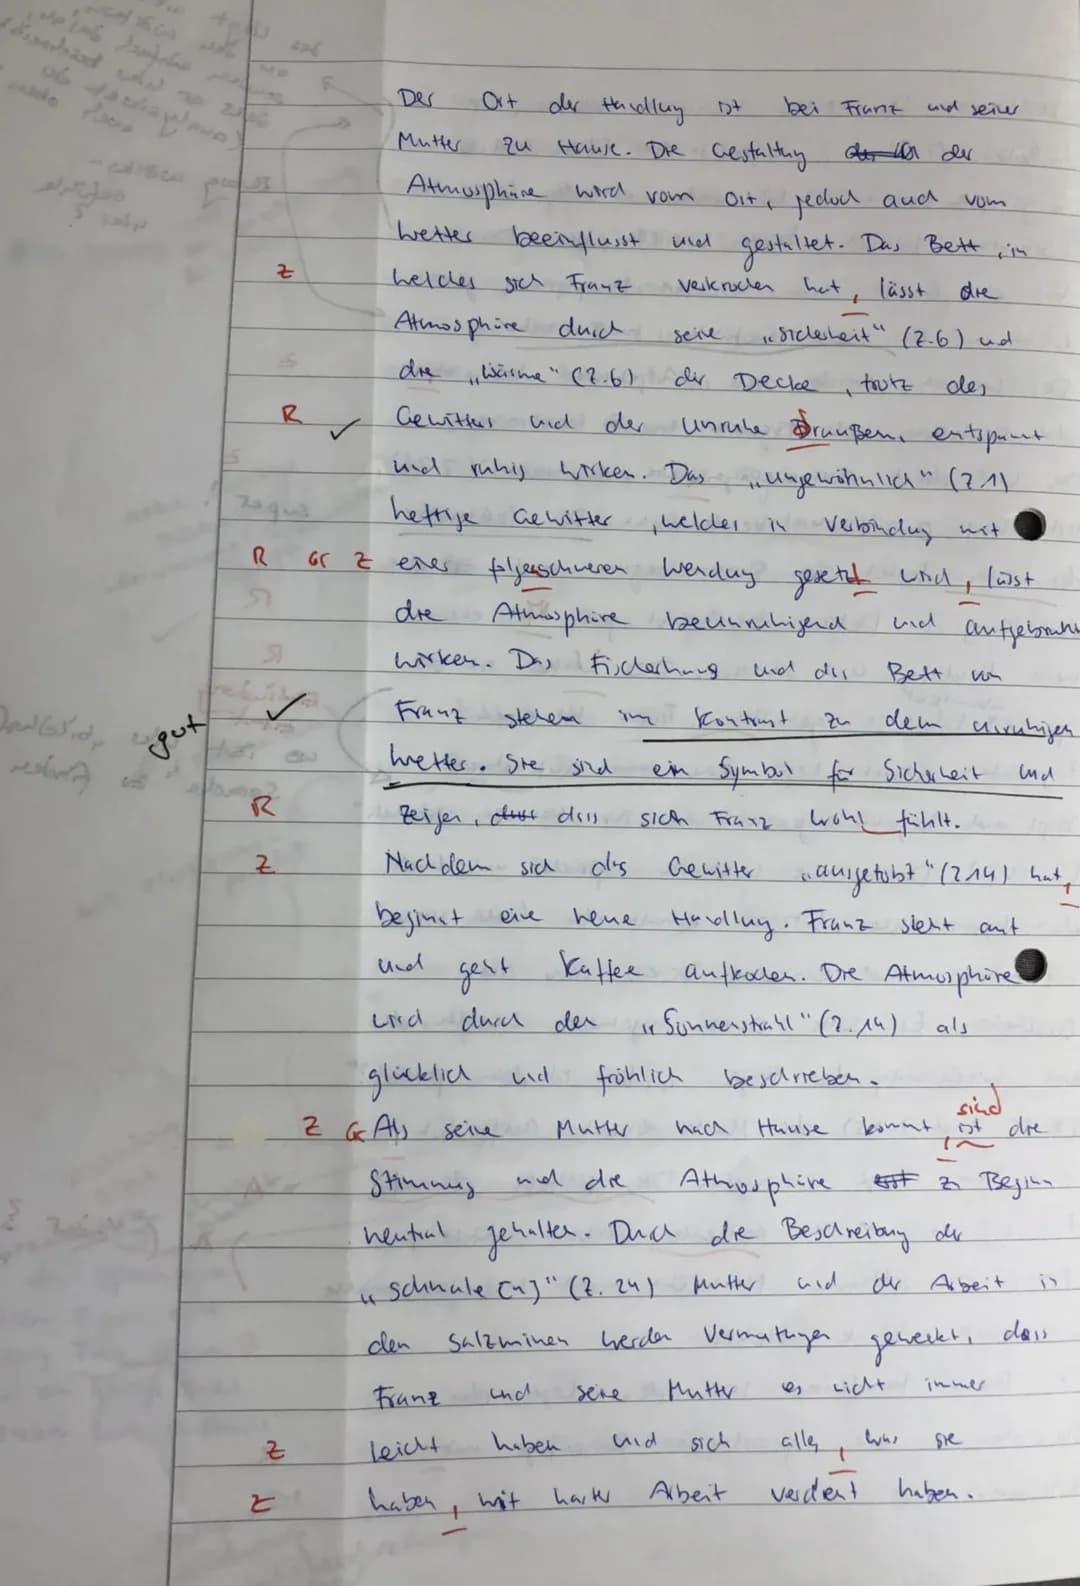 Der Ort der Handlung ist bei Franz und seiner
Mutter zu Hause. Die Gestaltung der
Atmosphäre wird vom Ort, jedoch auch vom
Wetter beeinflusst und gestaltet. Das Bett, in
Z welches sich Franz verkrochen hat, lässt die
Atmosphäre durch seine „Sicherheit" (Z.6) und
die „Wärme" (Z.6) der Decke, trotz des
R ✓ Gewitters und der Unruhe draußen, entspannt
und ruhig wirken. Das „ungewöhnlich" (Z.1)
heftige Gewitter, welches in Verbindung mit
R Gr Z einer folgenschweren Wendung gesetzt wird, lässt
die Atmosphäre beunruhigend und aufgebracht
wirken. Das Fischerhaus und das Bett von
gut ✓ Franz stehen im Kontrast zu dem unruhigen
Wetter. Sie sind ein Symbol für Sicherheit und
R zeigen, dass sich Franz wohl fühlt.
Z Nachdem sich das Gewitter „ausgetobt" (Z.14) hat,
beginnt eine neue Handlung. Franz steht auf
und geht Kaffee aufkochen. Die Atmosphäre
wird durch den „Sonnenstrahl" (Z.14) als
glücklich und fröhlich beschrieben.
sind
Z G Als seine Mutter nach Hause kommt, ist die
Stimmung und die Atmosphäre zu Beginn
neutral gehalten. Durch die Beschreibung der
„schmale[n]" (Z. 24) Mutter und der Arbeit in
den Salzminen werden Vermutungen geweckt, dass
Franz und seine Mutter es nicht immer
Z leicht haben und sich alles, was sie
Z haben, mit harter Arbeit verdient haben.